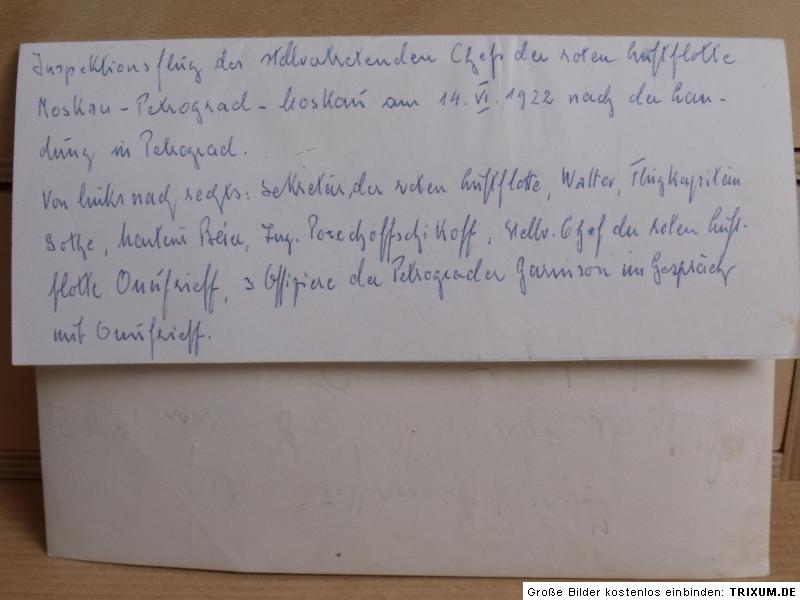 Inspektionsflug des stellvertretenden Chefs der roten Luftflotte
Moskau - Petrograd - Moskau am 14. VI. 1922 nach der Lan-
dung in Petrograd.
Von links nach rechts: Sekretär der roten Luftflotte, Walter, Flugkapitein
Monteur Ing. Porechoffschikoff, stellv. Chef der roten Luft-
flotte Onufrieff, 3 Offiziere der Petrograder Garnison im Gespräch
mit Onufrieff.
Große Bilder kostenlos einbinden: TRIXUM.DE